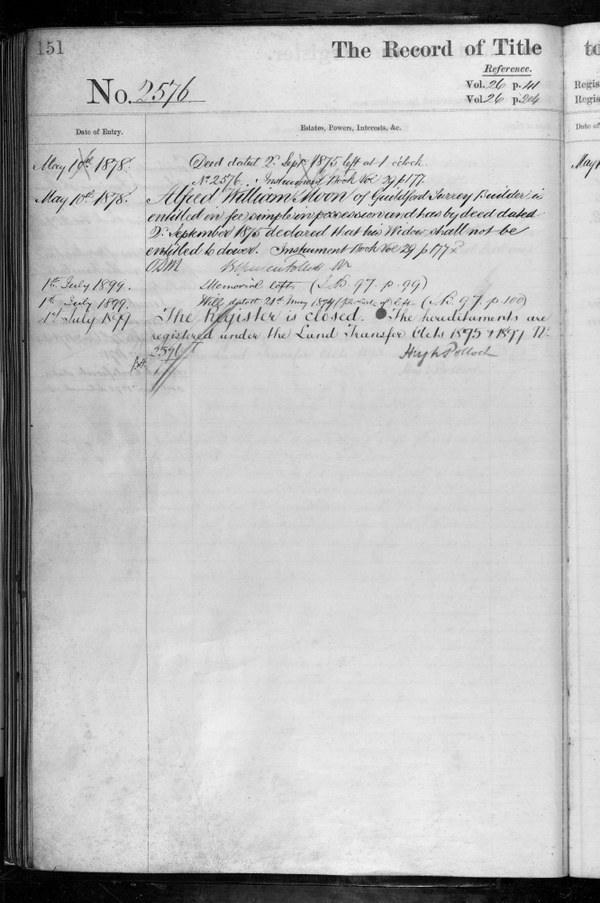 151
The Record of Title
to
Reference.
No. 2576
Vol. 26 p. 41
Vol. 26 p. 204
Regis
Regis
Date of Entry.
Estates, Powers, Interests, &c.
Date of
May 10th 1878. Deed dated 2nd Septr 1875 left at 1 o'clock.
No 2576. Instrument Book Vol 29 p 177
May 10th 1878. Alfred William Moon of Guildford Surrey Builder is
entitled in fee simple in possession and has by deed dated
2nd September 1875 declared that his Widow shall not be
entitled to dower. Instrument Book Vol 29 p 177
1st July 1899. Memorial left (I.B. 97. p. 99)
1st July 1899. Will dated 21st May 1894 (p. 100)
1st July 1899 The Register is closed. The hereditaments are
registered under the Land Transfer Acts 1875 & 1897 No.
2576
Hugh Pollock